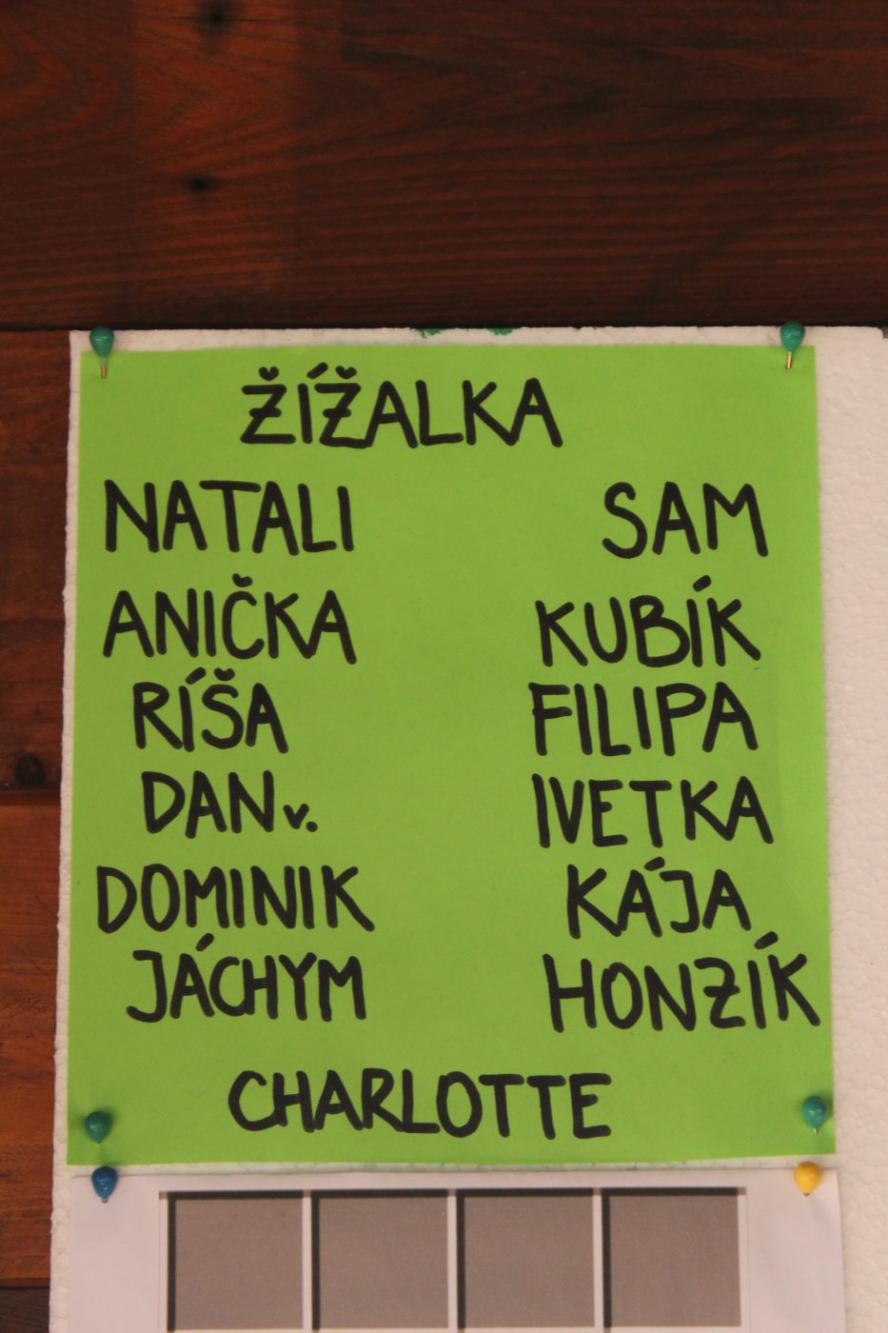 ŽÍŽALKA
NATALI SAM
ANIČKA KUBÍK
RÍŠA FILIPA
DAN v. IVETKA
DOMINIK KÁJA
JÁCHYM HONZÍK
CHARLOTTE